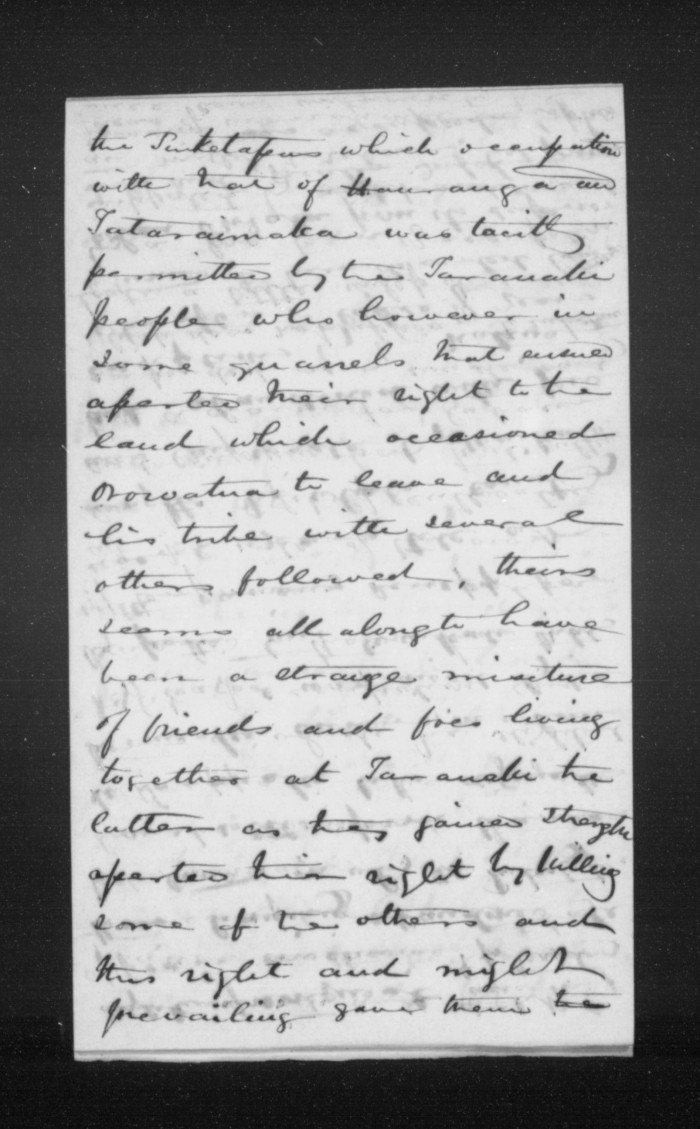 the Puketapus which occupation
with that of Hauranga an
Tataraimaka was tacitly
permitted by the Taranaki
people who however in
some quarrels that ensued
asserted their right to the
land which occasioned
to leave and
his tribe with several
others followed, theirs
seems all along to have
been a strange mixture
of friends and foes living
together at Taranaki the
latter as they gained strength
asserted their right by killing
some of the others and
thus right and might
prevailing gave them the